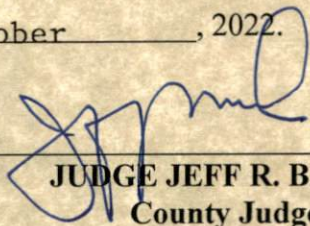 ober, 2022.
JUDGE JEFF R. B
County Judge